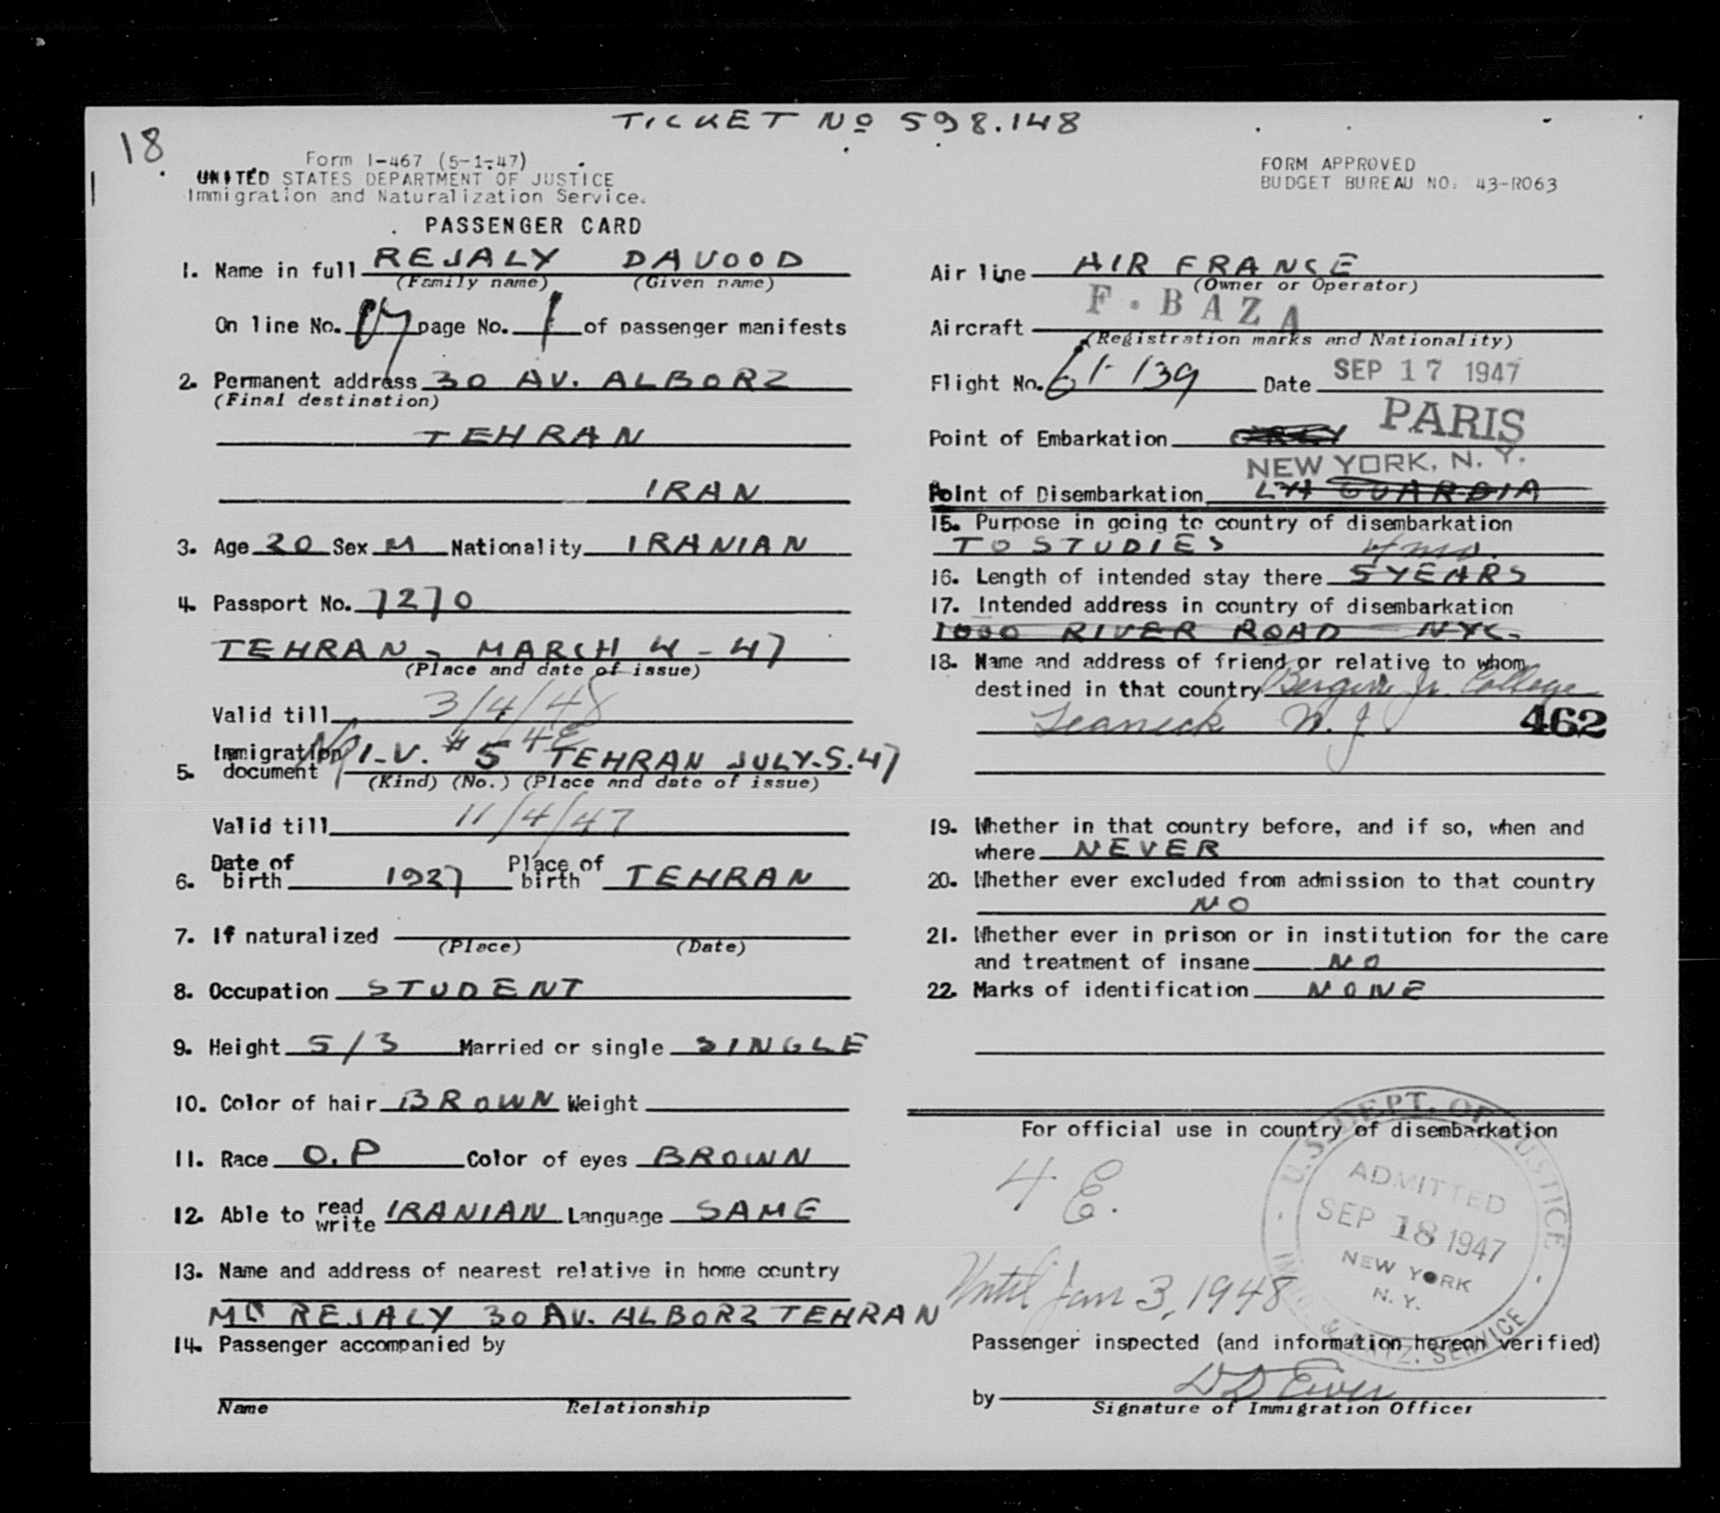 TICKET No 598.148
18
Form I-467 (5-1-47)
UNITED STATES DEPARTMENT OF JUSTICE
Immigration and Naturalization Service.
PASSENGER CARD
FORM APPROVED
BUDGET BUREAU NO. 43-R063
1. Name in full REJALY DAVOOD
(Family name) (Given name)
On line No. page No. 1 of passenger manifests
2. Permanent address 30 AV. ALBORZ
(Final destination)
TEHRAN
IRAN
3. Age 20 Sex M Nationality IRANIAN
4. Passport No. 7270
TEHRAN - MARCH 4 - 47
(Place and date of issue)
Valid till 3/4/48
5. Immigration document I-V. # 5 4E TEHRAN JULY-5.47
(Kind) (No.) (Place and date of issue)
Valid till 11/4/47
6. Date of birth 1927 Place of birth TEHRAN
7. If naturalized
(Place) (Date)
8. Occupation STUDENT
9. Height 5/3 Married or single SINGLE
10. Color of hair BROWN Weight
11. Race O.P Color of eyes BROWN
12. Able to read write IRANIAN Language SAME
13. Name and address of nearest relative in home country
Mr REJALY 30 AV. ALBORZ TEHRAN
14. Passenger accompanied by
Name Relationship
Air line AIR FRANCE
(Owner or Operator)
Aircraft F.BAZA
(Registration marks and Nationality)
Flight No. 61-139 Date SEP 17 1947
Point of Embarkation PARIS
NEW YORK, N. Y.
Point of Disembarkation LA GUARDIA
15. Purpose in going to country of disembarkation
TO STUDIES 4 mos.
16. Length of intended stay there 5 YEARS
17. Intended address in country of disembarkation
1000 RIVER ROAD NYC.
18. Name and address of friend or relative to whom
destined in that country Bergen Jr. College
Teaneck N.J. 462
19. Whether in that country before, and if so, when and
where NEVER
20. Whether ever excluded from admission to that country
NO
21. Whether ever in prison or in institution for the care
and treatment of insane NO
22. Marks of identification NONE
For official use in country of disembarkation
4 E.
Until Jan 3, 1948
U.S. DEPT. OF JUSTICE
ADMITTED
SEP 18 1947
NEW YORK
N. Y.
Passenger inspected (and information hereon verified)
by
Signature of Immigration Officer